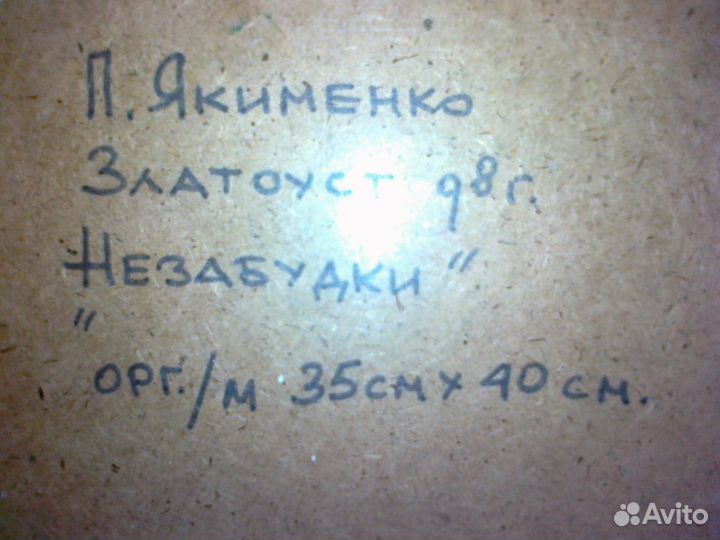 П. Якименко
Златоуст 98г.
"Незабудки"
орг./м 35см х 40см.
Avito